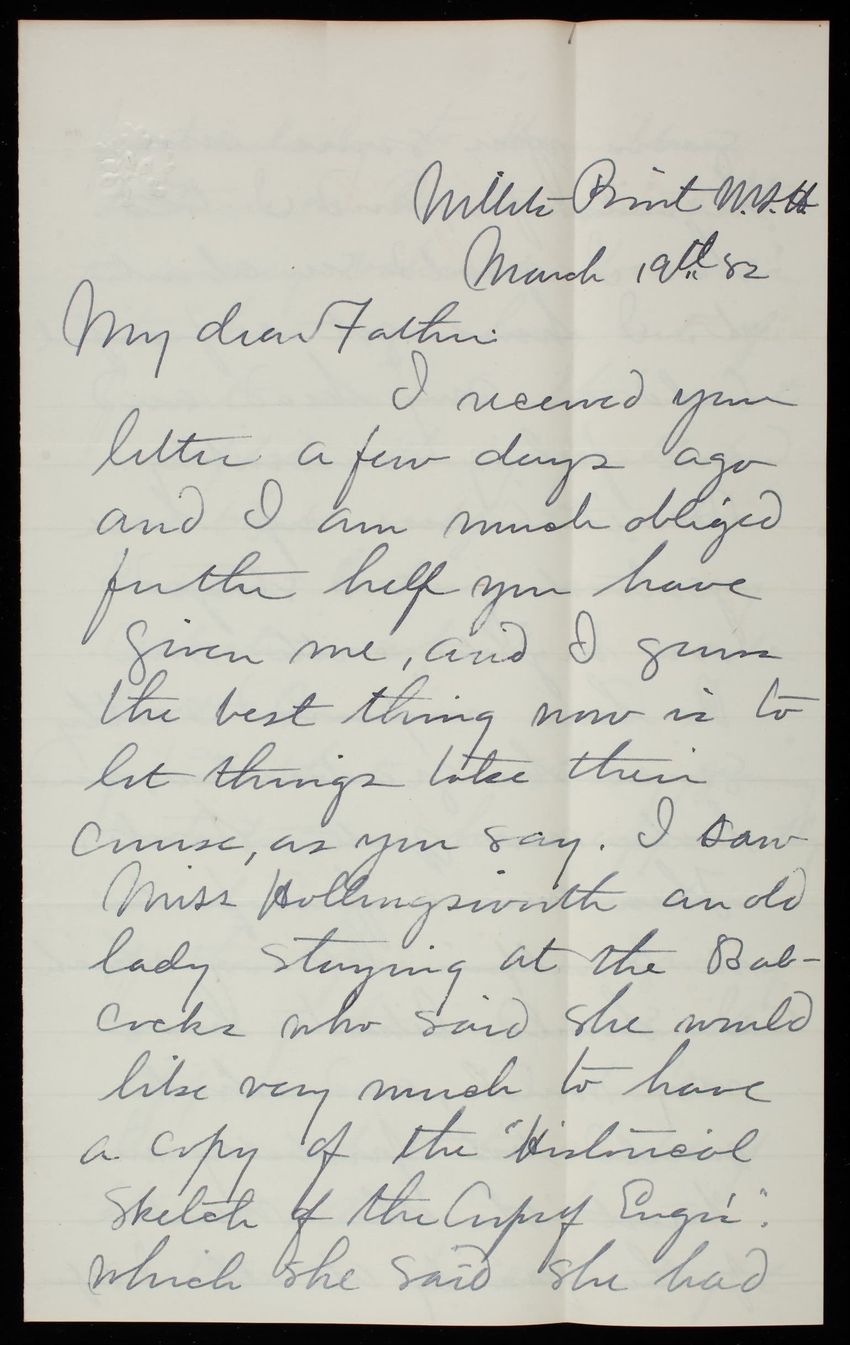 Willets Point N.Y.H.
March 19th 82
My dear Father:
I received your
letter a few days ago
and I am much obliged
for the help you have
given me, and I guess
the best thing now is to
let things take their
course, as you say. I saw
Miss Hollingsworth an old
lady staying at the Bab-
cocks who said she would
like very much to have
a copy of the "Historical
Sketch of the Corps of Engrs".
which she said she had